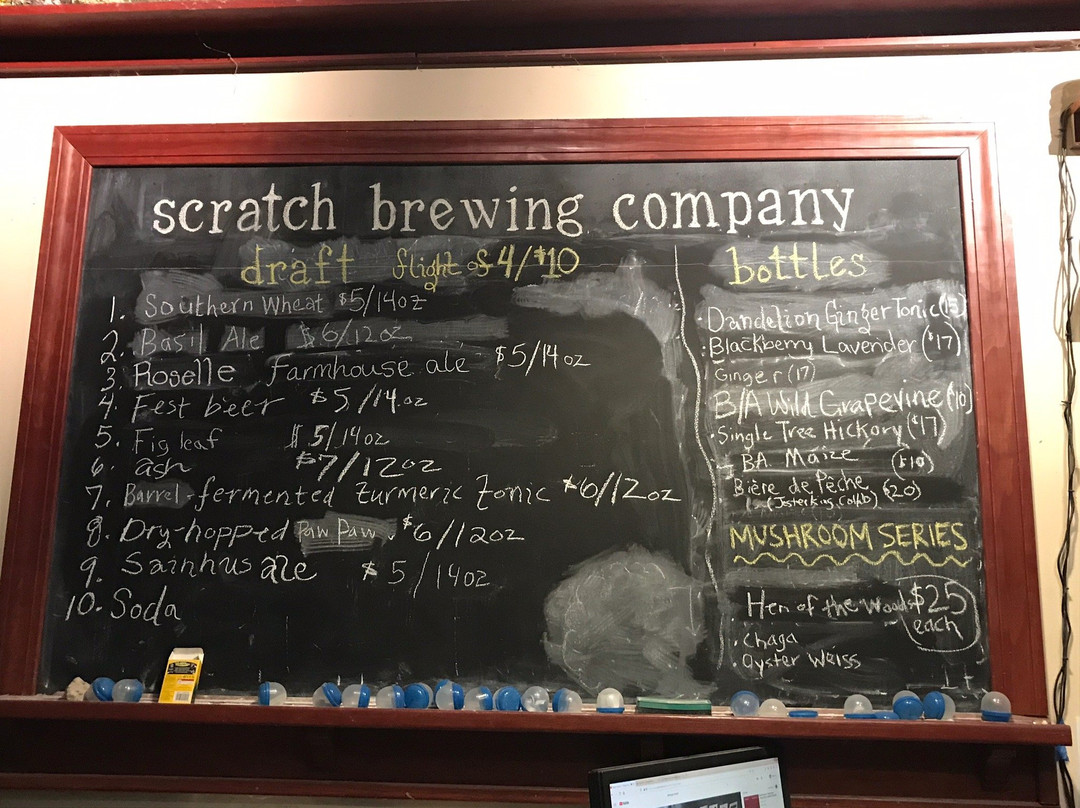 scratch brewing company
draft flight of 4/$10
1. Southern Wheat $5/14oz
2. Basil Ale $6/12oz
3. Roselle Farmhouse ale $5/14oz
4. Fest beer $5/14.oz
5. Fig leaf $5/14oz
6. ash $7/12oz
7. Barrel-fermented turmeric tonic $6/12oz
8. Dry-hopped Paw Paw. $6/12oz
9. Sainhus ale $5/14oz
10. Soda
bottles
· Dandelion Ginger Tonic (15)
· Blackberry Lavender ($17)
Ginger (17)
B/A Wild Grapevine ($10)
· Single Tree Hickory ($17)
BA Maize ($10)
Bière de Pêche (20)
(Jesterking Collab)
MUSHROOM SERIES
Hen of the Woods $25
each
· Chaga
· Oyster Weiss